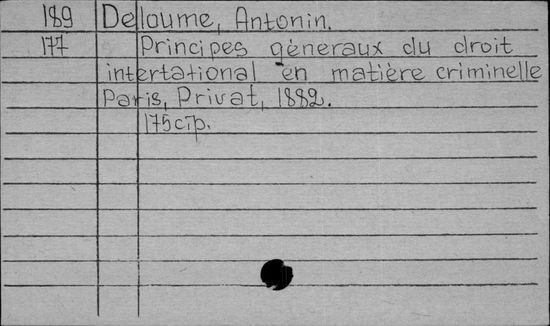 189 Deloume, Antonin.
177 Principes géneraux du droit
intertational en matière criminelle
Paris, Privat, 1882.
175 c.p.